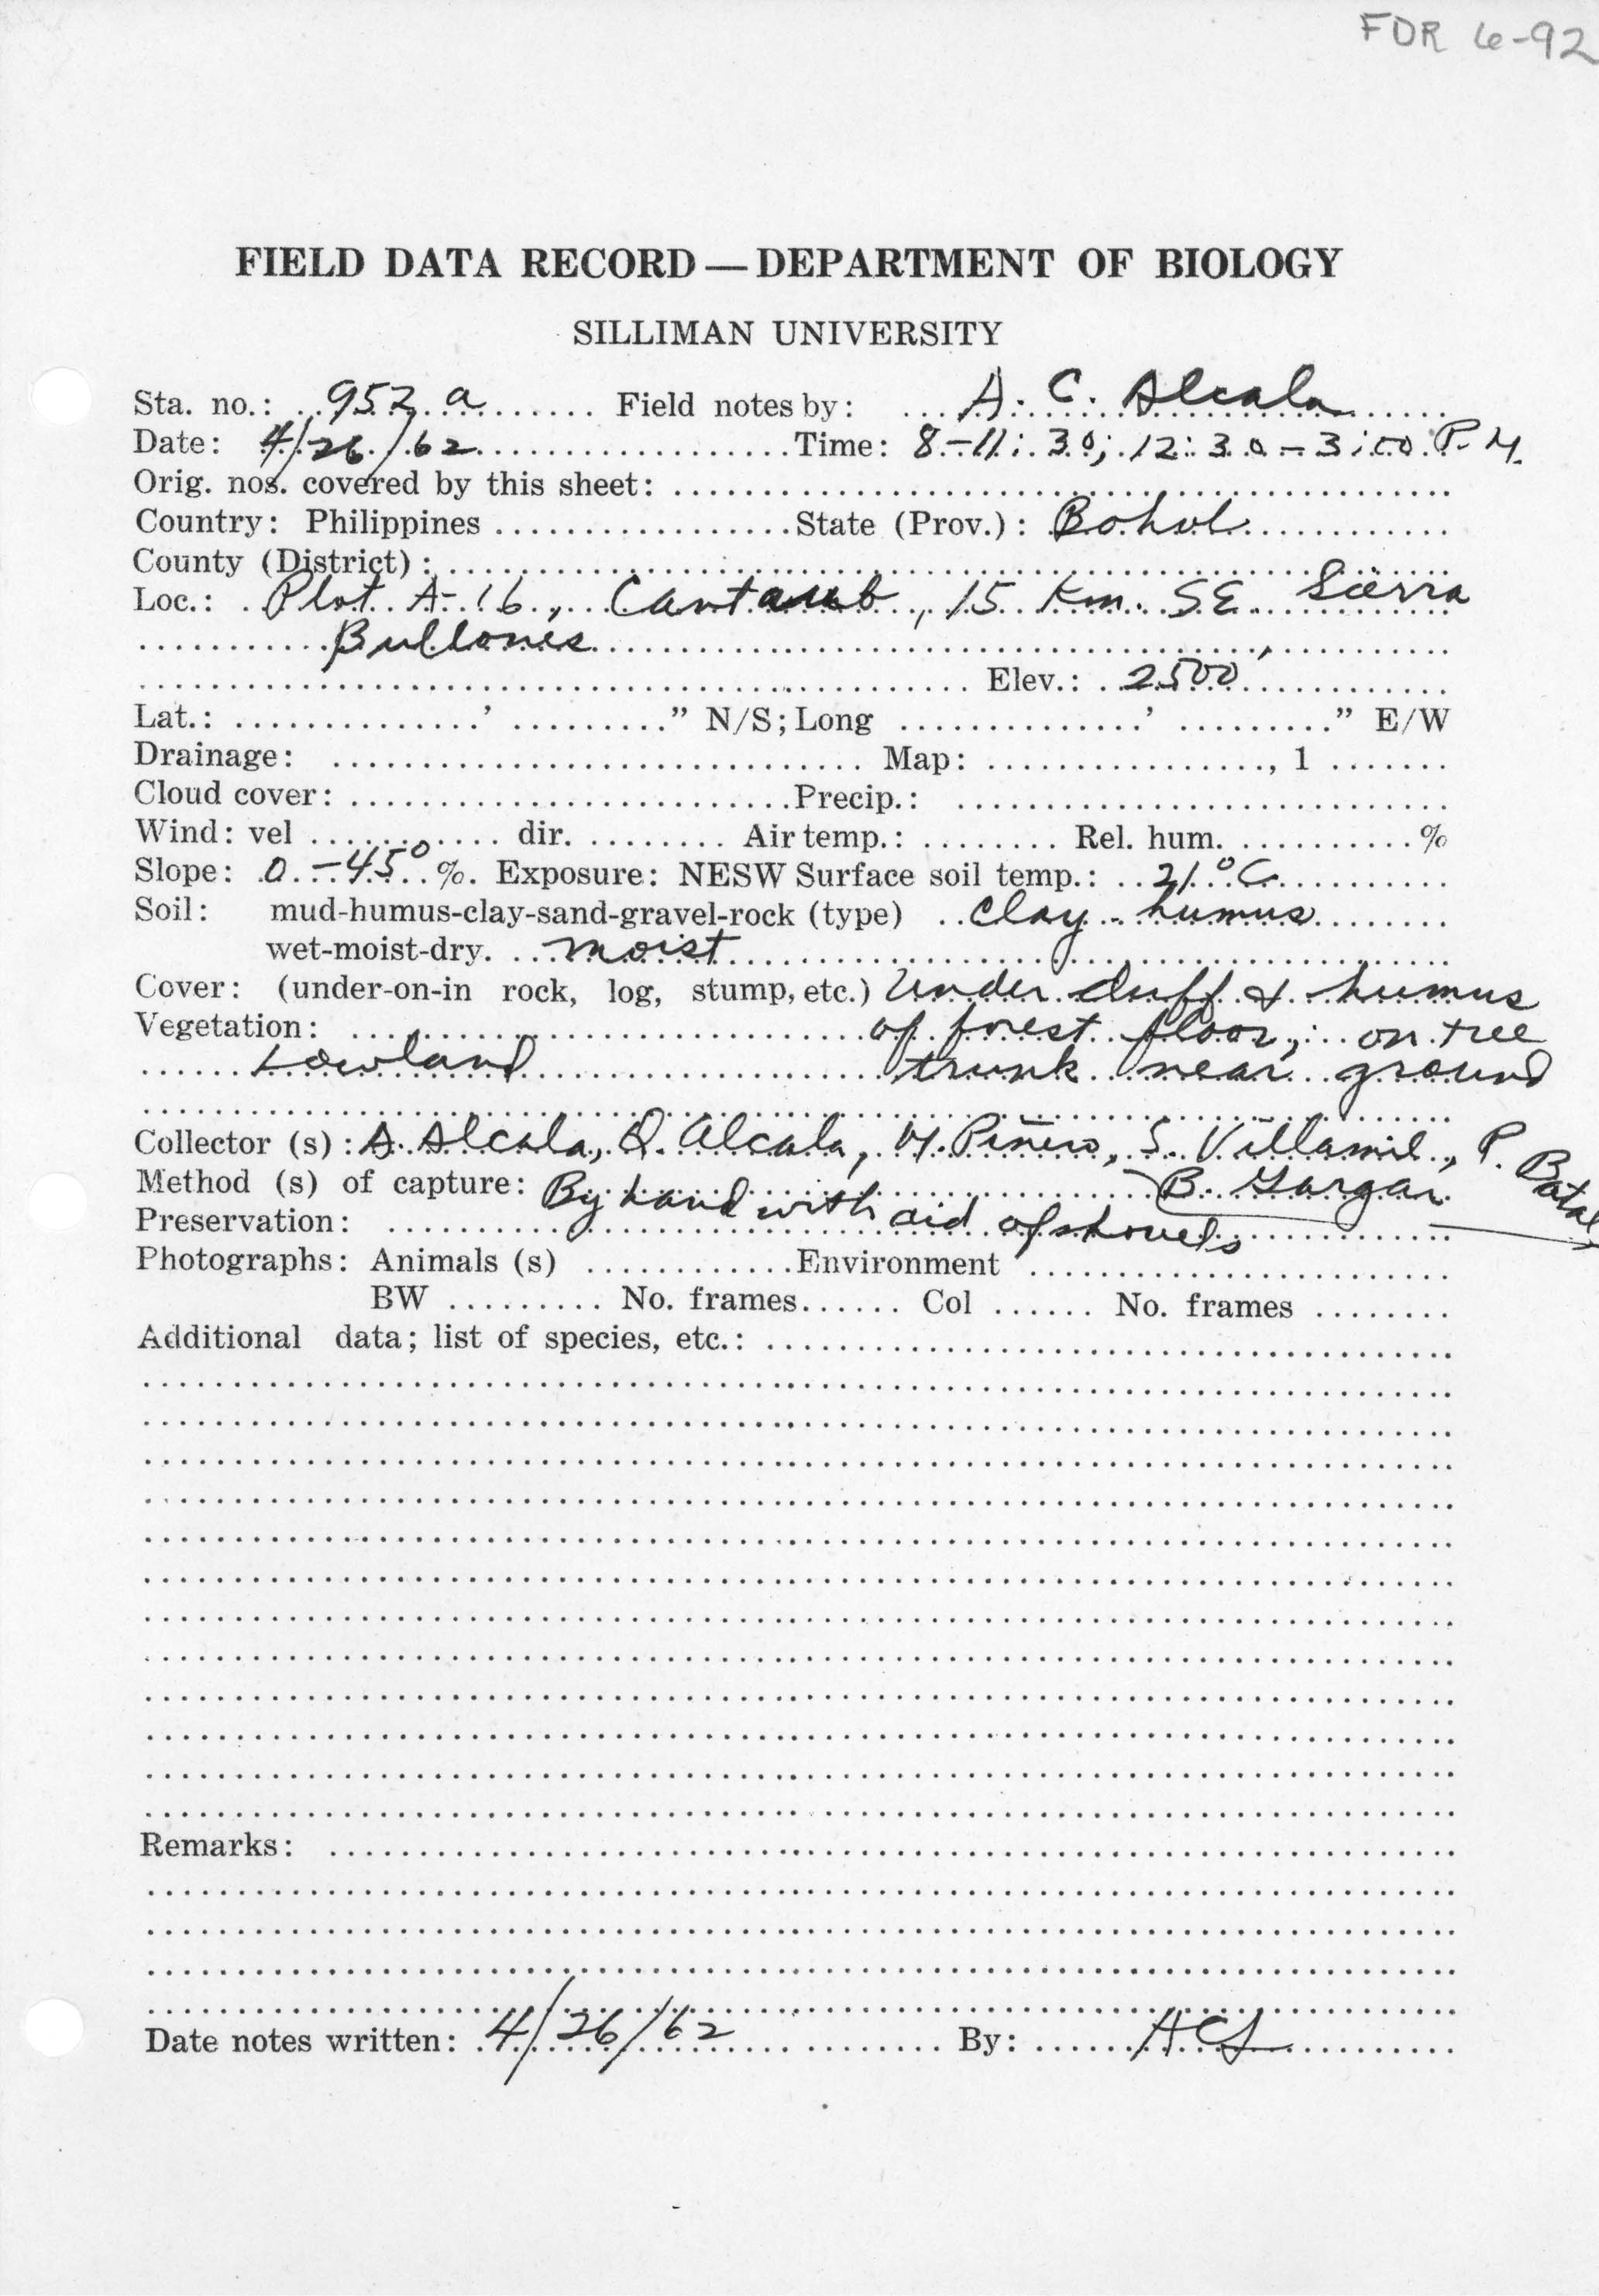 FDR 6-92
FIELD DATA RECORD — DEPARTMENT OF BIOLOGY
SILLIMAN UNIVERSITY
Sta. no.: 952 a Field notes by: A. C. Alcala
Date: 4/26/62 Time: 8-11:30; 12:30-3:00 P.M.
Orig. nos. covered by this sheet:
Country: Philippines State (Prov.): Bohol
County (District):
Loc.: Plot A-16, Cantaub, 15 Km. SE Sierra
Bullones
Elev.: 2500'
Lat.: ' " N/S; Long ' " E/W
Drainage: Map: , 1
Cloud cover: Precip.:
Wind: vel dir. Air temp.: Rel. hum. %
Slope: 0-45° %. Exposure: NESW Surface soil temp.: 21°C
Soil: mud-humus-clay-sand-gravel-rock (type) clay-humus
wet-moist-dry. moist
Cover: (under-on-in rock, log, stump, etc.) Under duff & humus
Vegetation: of forest floor; on tree
Lowland trunk near ground
Collector (s): A. Alcala, Q. Alcala, M. Piñero, S. Villamil, P. Batal
Method (s) of capture: By hand with aid of shovels B. Gargar
Preservation:
Photographs: Animals (s) Environment
BW No. frames Col No. frames
Additional data; list of species, etc.:
Remarks:
Date notes written: 4/26/62 By: ACA